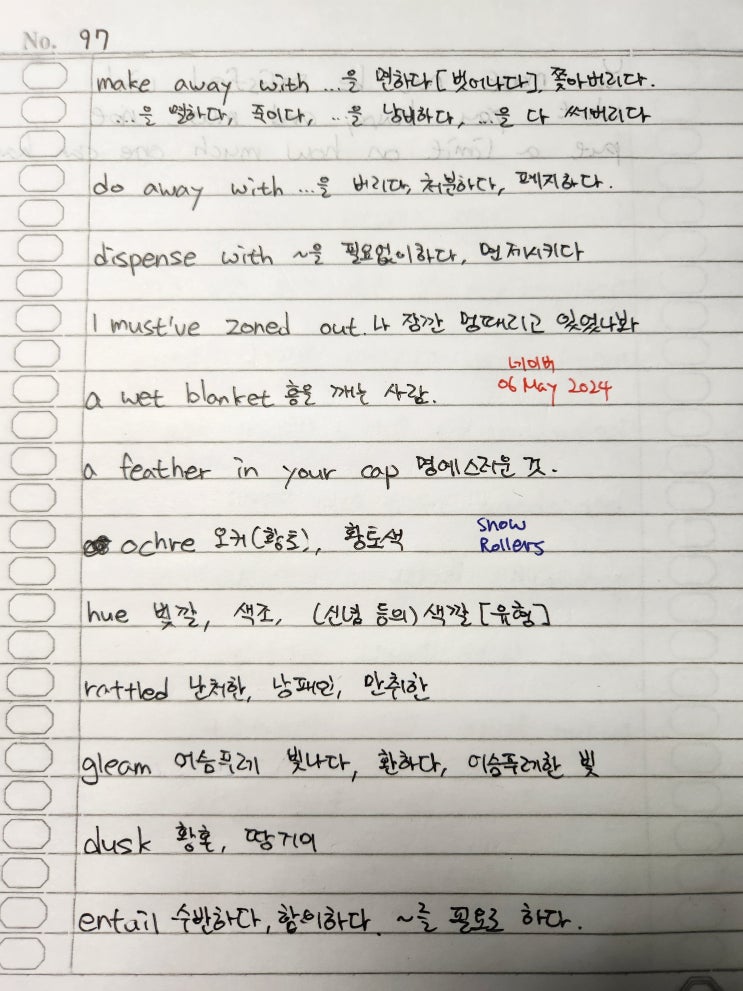 No. 97
make away with ...을 면하다[벗어나다], 쫓아버리다.
...을 멸하다, 죽이다, ...을 낭비하다, ...을 다 써버리다
do away with ...을 버리다, 처분하다, 폐지하다.
dispense with ~을 필요없이하다, 면제시키다
I must've zoned out. 나 잠깐 멍때리고 있었나봐
네이버
a wet blanket 흥을 깨는 사람.
06 May 2024
a feather in your cap 명예스러운 것.
Snow
ochre 오커(황토), 황토색
Rollers
hue 빛깔, 색조, (신념 등의) 색깔[유형]
rattled 난처한, 낭패인, 만취한
gleam 어슴푸레 빛나다, 환하다, 어슴푸레한 빛
dusk 황혼, 땅거미
entail 수반하다, 함의하다. ~를 필요로 하다.